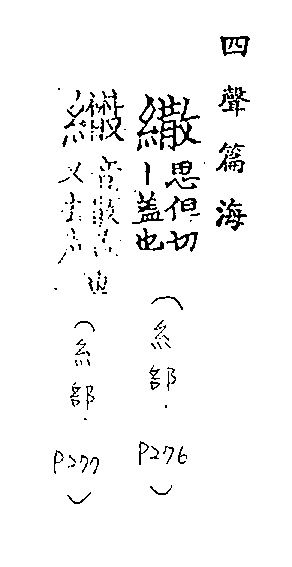 四聲篇海
繖
思但切
丨盖也
(糸部.
P276)
音散
又去声
(糸部.
P277)